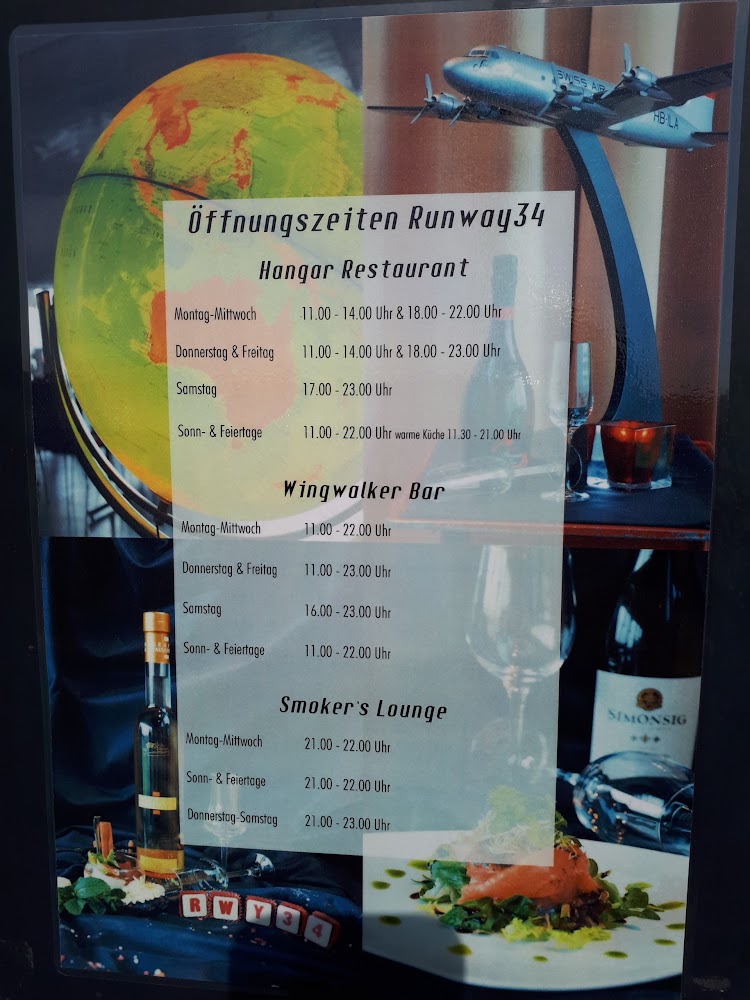 SWISS AIR
HB-LA
Öffnungszeiten Runway34
Hangar Restaurant
Montag-Mittwoch 11.00 - 14.00 Uhr & 18.00 - 22.00 Uhr
Donnerstag & Freitag 11.00 - 14.00 Uhr & 18.00 - 23.00 Uhr
Samstag 17.00 - 23.00 Uhr
Sonn- & Feiertage 11.00 - 22.00 Uhr warme Küche 11.30 - 21.00 Uhr
Wingwalker Bar
Montag-Mittwoch 11.00 - 22.00 Uhr
Donnerstag & Freitag 11.00 - 23.00 Uhr
Samstag 16.00 - 23.00 Uhr
Sonn- & Feiertage 11.00 - 22.00 Uhr
Smoker's Lounge
Montag-Mittwoch 21.00 - 22.00 Uhr
Sonn- & Feiertage 21.00 - 22.00 Uhr
Donnerstag-Samstag 21.00 - 23.00 Uhr
SIMONSIG
RWY34